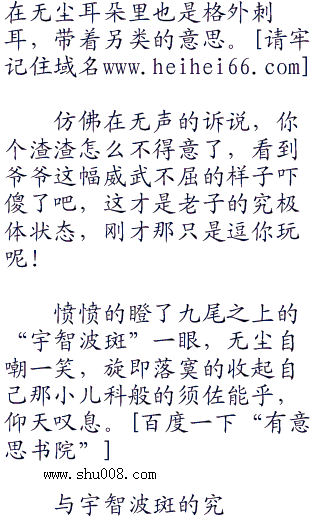 在无尘耳朵里也是格外刺
耳，带着另类的意思。[请牢
记住域名www.heihei66.com]
仿佛在无声的诉说，你
个渣渣怎么不得意了，看到
爷爷这幅威武不屈的样子吓
傻了吧，这才是老子的究极
体状态，刚才那只是逗你玩
呢！
愤愤的瞪了九尾之上的
“宇智波斑”一眼，无尘自
嘲一笑，旋即落寞的收起自
己那小儿科般的须佐能乎，
仰天叹息。[百度一下“有意
思书院”]
www.shu008.com
与宇智波斑的究